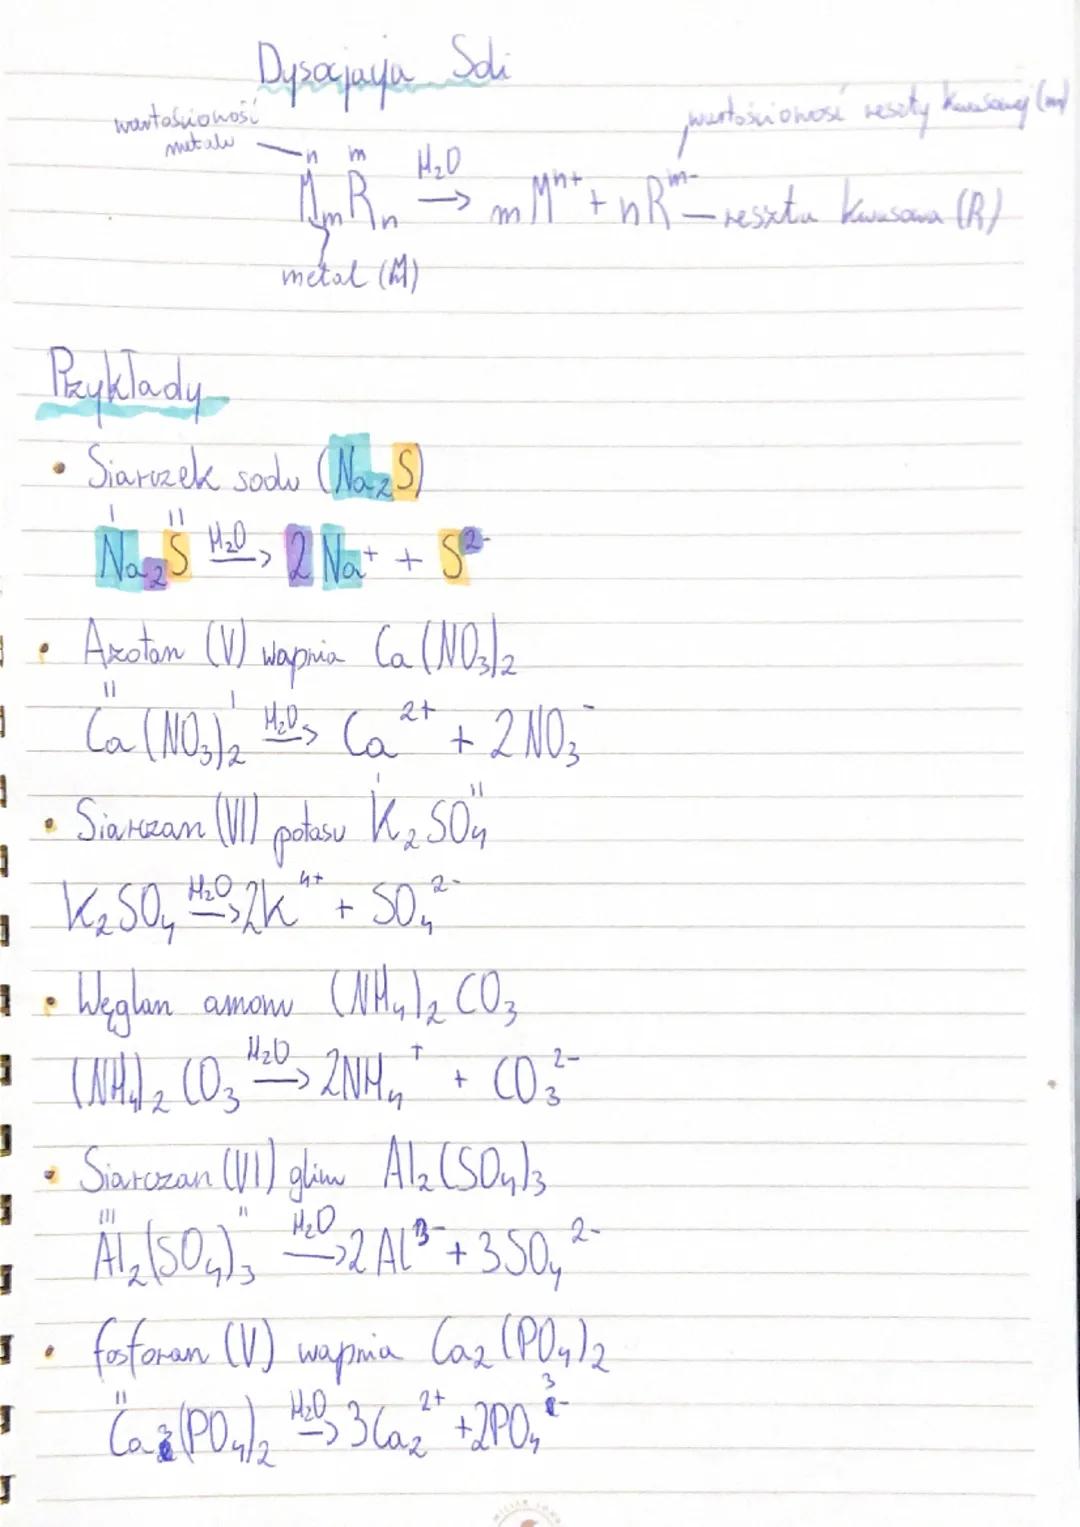 Dysocjacja Soli
wartościowość metalu
wartościowość reszty kwasowej (m)
n m
MₘRₙ H₂O → mMⁿ⁺ + nRᵐ⁻ — reszta kwasowa (R)
metal (M)
Przykłady
• Siarczek sodu (Na₂S)
I II
Na₂S H₂O → 2Na⁺ + S²⁻
• Azotan (V) wapnia Ca(NO₃)₂
II I
Ca(NO₃)₂ H₂O → Ca²⁺ + 2NO₃⁻
I II
• Siarczan (VI) potasu K₂SO₄
K₂SO₄ H₂O → 2K⁴⁺ + SO₄²⁻
• Węglan amonu (NH₄)₂CO₃
(NH₄)₂CO₃ H₂O → 2NH₄⁺ + CO₃²⁻
• Siarczan (VI) glinu Al₂(SO₄)₃
III II
Al₂(SO₄)₃ H₂O → 2Al³⁻ + 3SO₄²⁻
• fosforan (V) wapnia Ca₂(PO₄)₂
II
Ca₃(PO₄)₂ H₂O → 3Ca₂²⁺ + 2PO₄³⁻